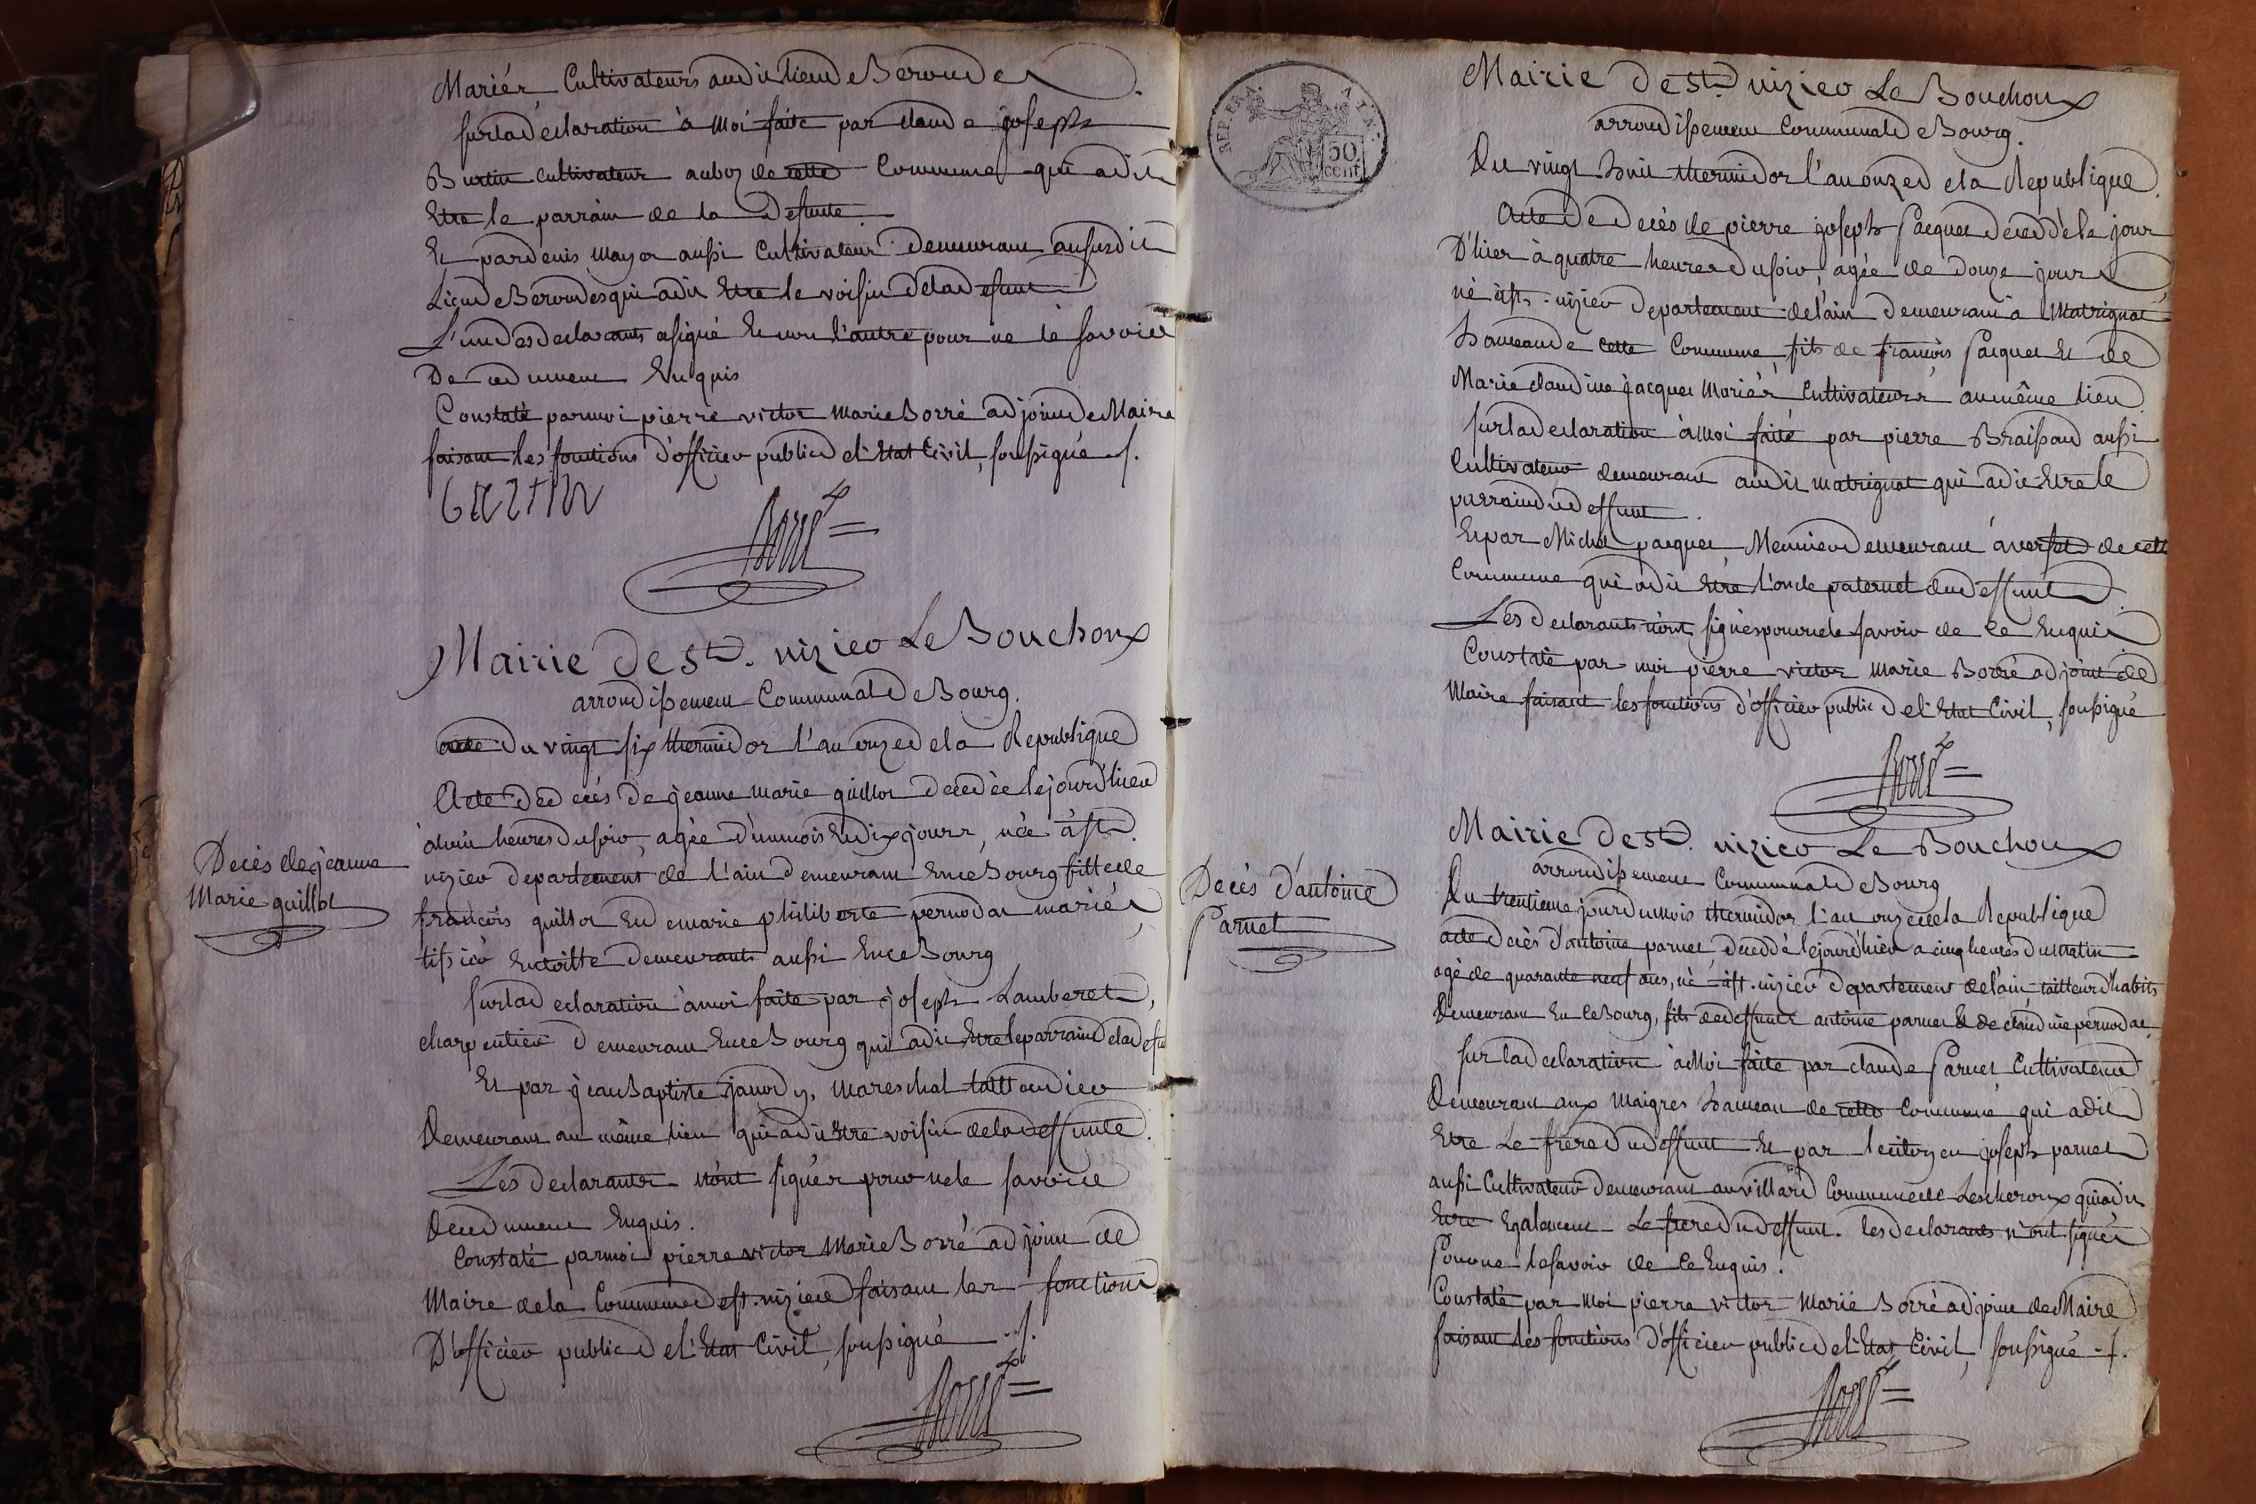 Mariér Cultivateurs audit lieu de Beroudes
sur la declaration à Moi faite par claude joseph
Burtin cultivateur au boz de cette Commune qui a dit
Etre le parrain de la Defunte
Et par denis mayor aussi Cultivateur demeurant au susdit
Lieu de Beroudes qui a dit Etre le voisin de la defunte
L'un des declarants a signé Et non l'autre pour ne le savoir
De ce dument Enquis
Constaté par moi pierre victor marie Borré adjoint de Maire
faisant les fonctions d'officier public de l'Etat Civil, soussigné ./.
burtin
Borré
Mairie de St. nizier Le Bouchoux
arrondissement Communal de Bourg.
acte Du vingt six thermidor l'an onze de la Republique
Acte de decés de jeanne marie guillot decedèe le jour d'hier
à huit heures du soir, agèe d'un mois Et dix jours, nèe à St.
nizier departement de l'ain demeurant En ce Bourg fille de
Decès de jeanne
Marie guillot
francois guillot Et de marie philiberte pernodat mariés
tissier En toille demeurants aussi En ce Bourg
sur la declaration à moi faite par joseph Lamberet,
charpentier demeurant En ce Bourg qui a dit Etre le parrain de la defu
Et par jean Baptiste janody, mareschal tallandier
demeurant au même lieu qui a dit Etre voisin de la deffunte.
Les declarants n'ont signér pour ne le savoir
de ce dument Enquis.
Constaté par moi pierre victor Marie Borré adjoint de
Maire de la Commune de st. nizier faisant les fonctions
D'officier public de l'Etat Civil, soussigné ./.
Borré
REP. FRA.
50
cent
Mairie de St. nizier Le Bouchoux
arrondissement Communal de Bourg.
Du vingt huit thermidor l'an onze de la Republique
Acte de decés de pierre joseph pacquet decedè le jour
D'hier à quatre heures du soir, agée de douze jours
né à st. nizier departement de l'ain demeurant à Matrignat
hameau de cette Commune fils de francois pacquet Et de
Marie claudine jacquet Mariér Cultivateurs au même lieu
sur la declaration à Moi faite par pierre Braissand aussi
Cultivateur demeurant audit matrignat qui a dit Etre le
parrain du deffunt.
Et par Michel pacquet Meunier demeurant à versel de cette
Commune qui a dit Etre l'oncle paternel du deffunt
Les declarants n'ont signés pour ne le savoir de ce Enquis
Constaté par moi pierre victor marie Borré adjoint de
Maire faisant les fonctions d'officier public de l'Etat Civil, soussigné
Borré
Mairie de St. nizier Le Bouchoux
arrondissement Communal de Bourg
Decès d'antoine
Parnet
Du trentieme jour du mois thermidor l'an onze de la Republique
acte decès d'antoine parnet, decedé le jour d'hier a cinq heures du matin
agé de quarante neuf ans, nè à st. nizier departement de l'ain tailleur d'habits
demeurant En ce Bourg, fils de deffunct antoine parnet & de claudine pernodat
sur la declaration à Moi faite par claude Parnet Cultivateur
demeurant aux maigres hameau de cette Commune qui a dit
Etre Le frere du deffunt Et par le citoyen joseph parnet
aussi Cultivateur demeurant au villard Commune de Lescheroux qui a dit
Etre Egalement Le frere du deffunt. les declarants n'ont signér
Pour ne le savoir de ce Enquis.
Constaté par Moi pierre victor Marie Borré adjoint de Maire
faisant les fonctions d'officier public de l'Etat Civil, soussigné ./.
Borré